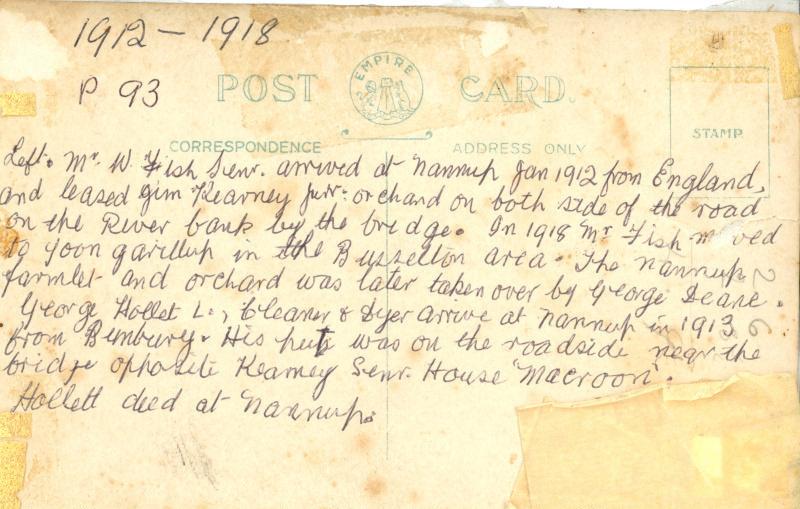 1912 - 1918
P 93
POST CARD.
EMPIRE
CORRESPONDENCE
ADDRESS ONLY
STAMP
Left. Mr. W. Fish Senr. arrived at Nannup Jan 1912 from England,
and leased Jim Kearney junr. orchard on both side of the road
on the River bank by the bridge. In 1918 Mr Fish moved
to Yoongarillup in the Busselton area. The Nannup
farmlet and orchard was later taken over by George Deane.
George Hollet L., Cleaner & Dyer arrive at Nannup in 1913
from Bunbury. His hut was on the roadside near the
bridge opposite Kearney Senr. House "Macroon".
Hollett died at Nannup.
226